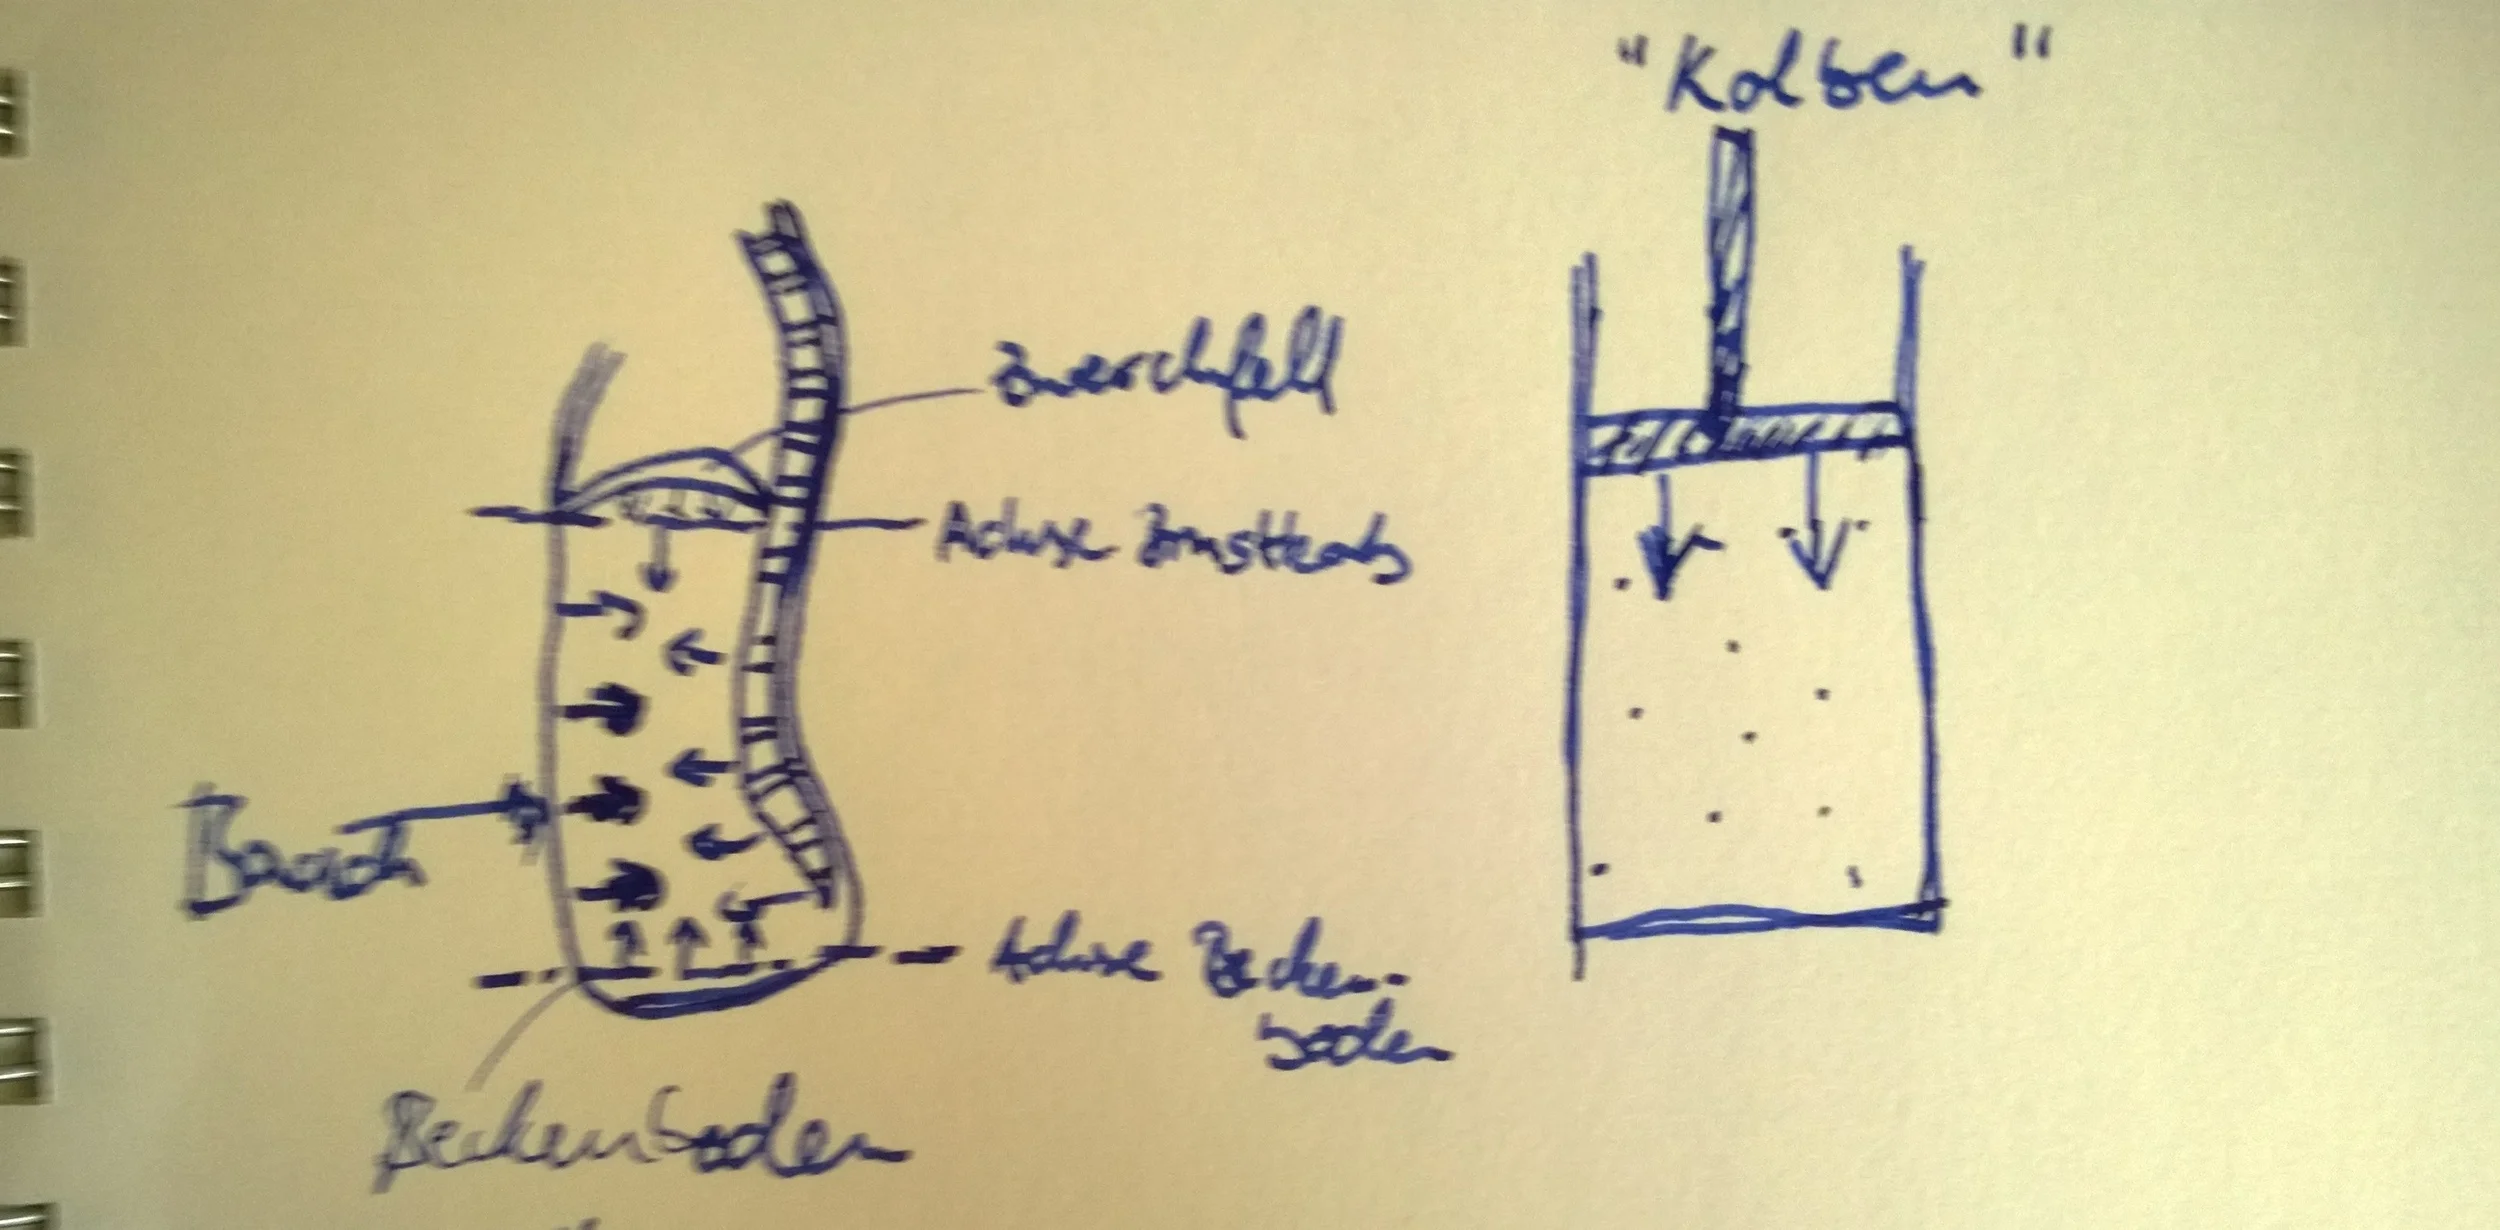 "Kolben"
Zwerchfell
Achse Brustkorb
Bauch
Achse Becken-
boden
Beckenboden